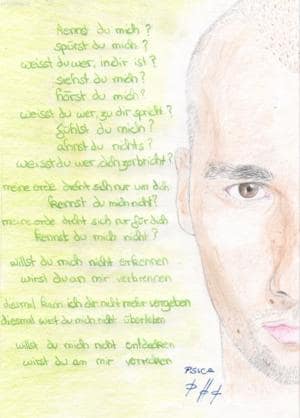 Kennst du mich?
spürst du mich?
weisst du wer, in dir ist?
siehst du mich?
hörst du mich?
weisst du wer, zu dir spricht?
fühlst du mich?
ahnst du nichts?
weisst du wer dich zerbricht?
meine erde dreht sich nur um dich
Kennst du mich nicht?
meine erde dreht sich nur für dich
Kennst du mich nicht?
willst du mich nicht erkennen
wirst du an mir verbrennen
diesmal kann ich dir nicht mehr vergeben
diesmal wirst du mich nicht überleben
willst du mich nicht entdecken
wirst du an mir verrecken